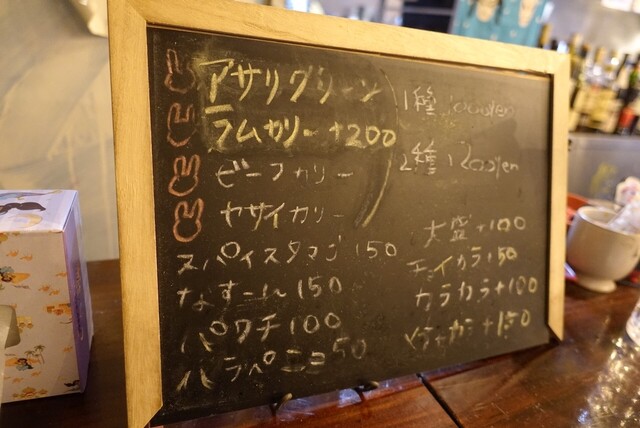 アサリグリーン
ラムカリー +200
ビーフカリー
ヤサイカリー
スパイスタマゴ 150
なすーん 150
パクチ 100
ハラペニョ 50
1種 1000yen
2種 1200yen
大盛 +100
チョイカラ +50
カラカラ +100
メチャカラ +150